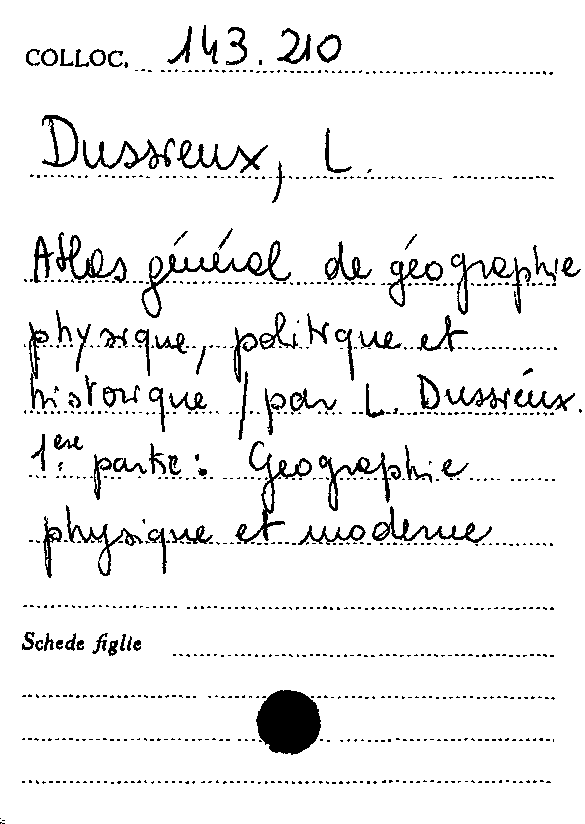 COLLOC. 143.210
Dussieux, L.
Atlas général de géographie
physique, politique et
historique / par L. Dussieux.
1ère partie: Geographie
physique et moderne
Schede figlie